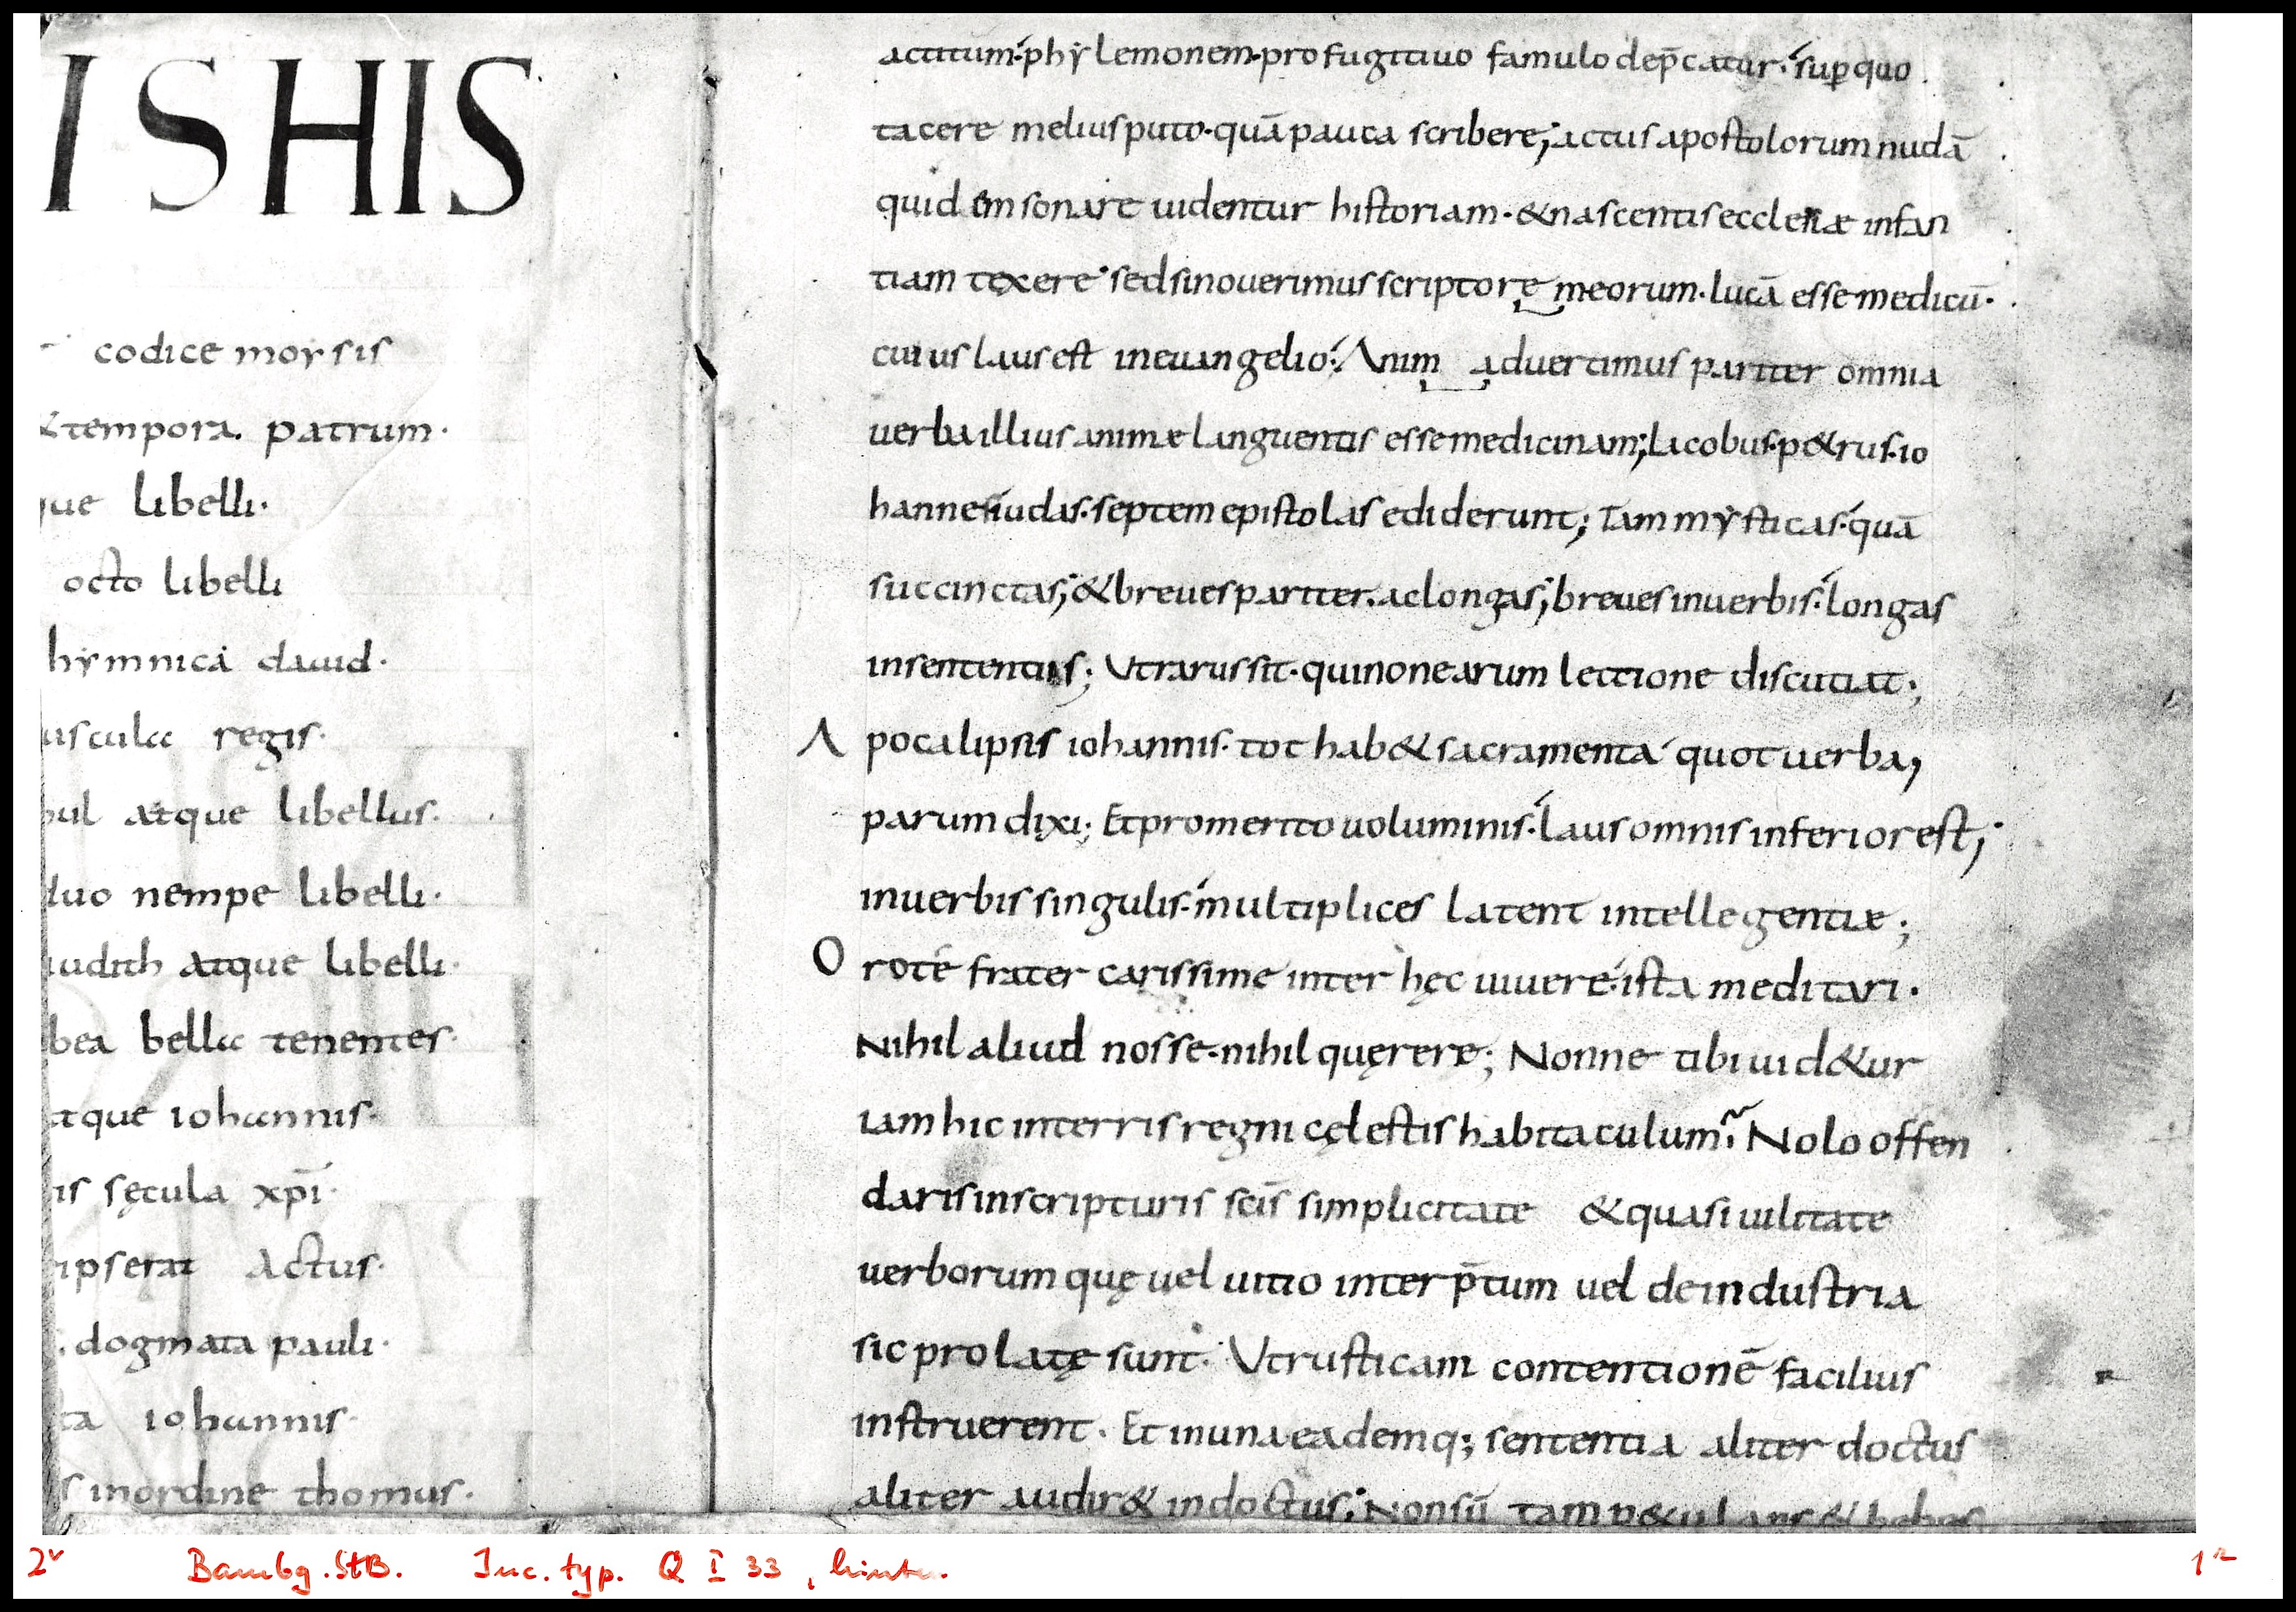 ISHIS
codice moysis
&tempora. patrum.
que libelli.
octo libelli
hymnica dauid.
uscula regis.
bul atque libellus.
duo nempe libelli.
iudith atque libelli.
bea bella tenentes.
atque iohannis.
is sęcula xp̄i.
ipserat actus.
. dogmata pauli.
ta iohannis.
s inordine thomus.
actitum. phylemonem. pro fugitiuo famulo dep̄catur. sup̲ quo
tacere melius puto. quā pauca scribere; actus apostolorum nudā
quid em sonare uidentur historiam. & nascentis ecclesiæ infan
tiam texere. sed si nouerimus scriptorę meorum. lucā esse medicū.
cuius laus est in euangelio. Anim aduertimus pariter omnia
uerba illius animæ languentis esse medicinam; Iacobus. p&rus. io
hannes iudas. septem epistolas ediderunt; Tam mysticas. quā
succinctas; & breues pariter. ac longas; breues in uerbis. longas
in sententiis; Vt rarus sit. qui non earum lectione discutiat;
Apocalipsis iohannis. tot hab& sacramenta quot uerba;
parum dixi; Et pro merito uoluminis. laus omnis inferior est;
in uerbis singulis. multiplices latent intellegentiæ;
Oro té frater carissime inter hęc uiuere. ista meditari.
Nihil aliud nosse. nihil quęrere; Nonne tibi uid&ur
iam hic in terris regni cęlestis habitaculum. Nolo offen
daris in scripturis scīs simplicitate & quasi uilitate
uerborum quę uel uitio interp̄tum uel de industria
sic prolatę sunt. Vt rusticam contentionē facilius
instruerent. Et in una eademq; sententia aliter doctus
aliter audir& indoctus. Non sū tam p&ulans & hebes
2v Bambg. StB. Inc. typ. Q I 33, hinten. 1r